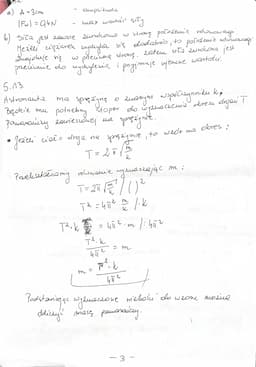 a) A = 3cm - amplituda
|Fw| = 0,4N - max wartość siły
b) Siła jest zawsze zwrócona w stronę położenia równowagi.
Jeżeli ciężarek wychyla się dodatnio, to położenie równowagi
znajduje się w przeciwną stronę, zatem siła zwrócona jest
przeciwnie do wychylenia i przyjmuje ujemne wartości.
5.13.
Astronauta ma sprężynę o znanym współczynniku k,
będzie mu potrzebny stoper do wyznaczenia okresu drgań T
pomarańczy zawieszonej na sprężynie.
• Jeżeli ciało drga na sprężynie, to wzór na okres:
T = 2π√m/k
Przekształcamy równanie wyznaczając m:
T = 2π√m/k /( )²
T² = 4π² m/k /·k
T²·k = 4π²·m /:4π²
T²·k/4π² = m
m = T²·k/4π²
Podstawiając wyznaczone wielkości do wzoru można
obliczyć masę pomarańczy.
- 3 -